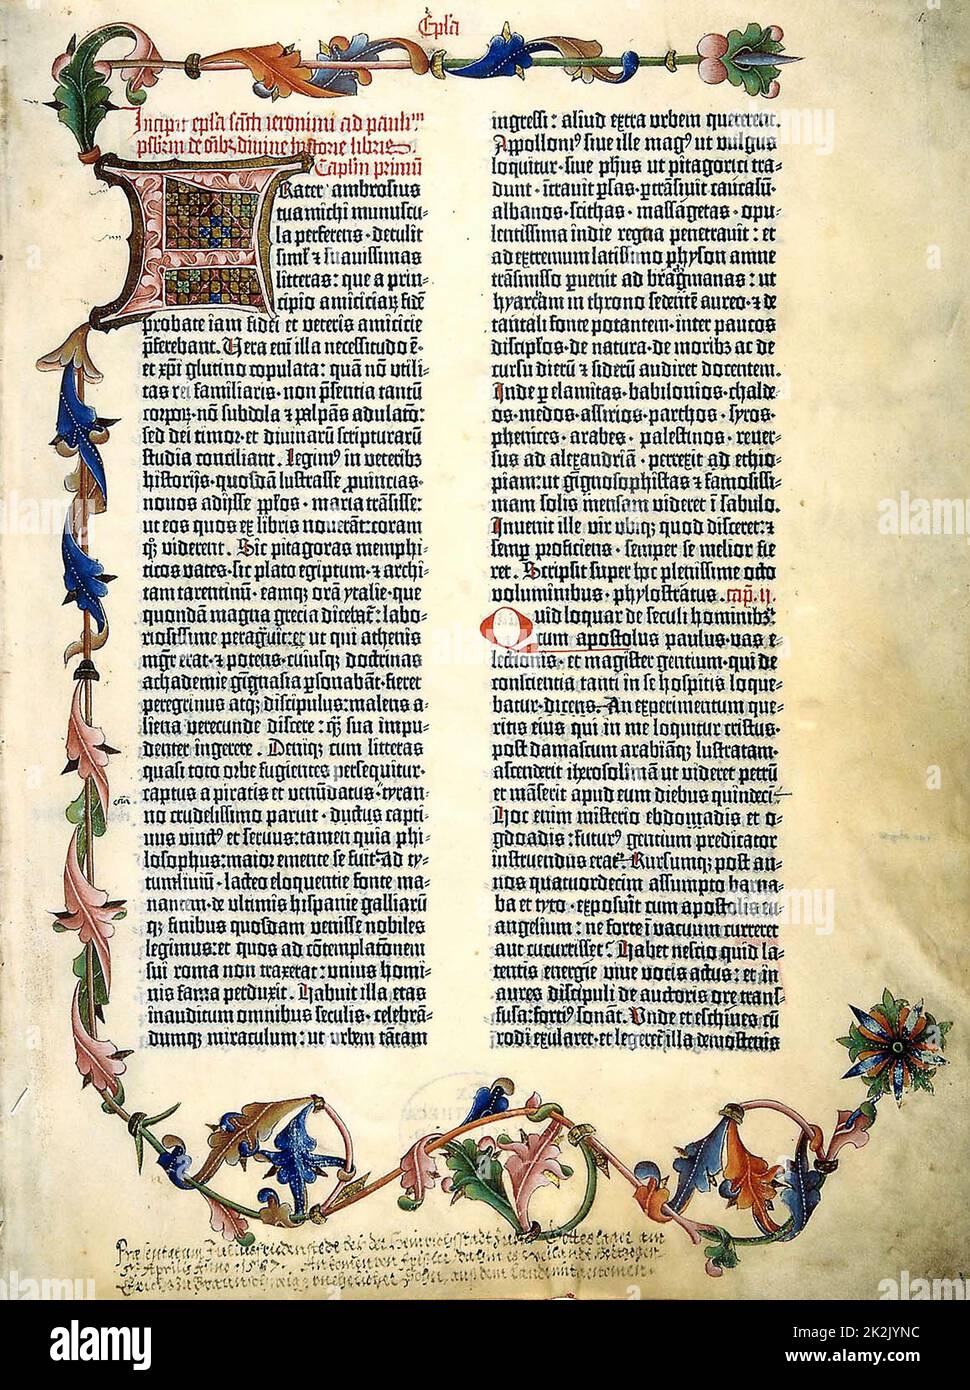 Epl̃a
Incipit epl̃a sancti ieronimi ad paulinum
presbiterum de omnibus divine historie libris
Capitulum primum
Frater ambrosius
tua michi munuscu-
la perferens, detulit
simul et suavissimas
litteras: que a prin-
cipio amiciciarum, fidem
probate iam fidei et veteris amicicie
preferebant. Vera enim illa necessitudo est,
et xpi glutino copulata: quam non utili-
tas rei familiaris, non presentia tantum
corporum, non subdola et palpans adulatio:
sed dei timor, et divinarum scripturarum
studia conciliant. Legimus in veteribus
historijs, quosdam lustrasse provincias,
novos adijsse populos, maria transisse:
ut eos quos ex libris noverant: coram
quoque viderent. Sic pitagoras memphi-
ticos vates, sic plato egiptum, et archi-
tam tarentinum, eamque oram ytalie, que
quondam magna grecia dicebatur: labo-
riosissime peragravit: et ut qui athenis
magister erat, et potens, cuiusque doctrinas
achademie gymnasia personabant, fieret
peregrinus atque discipulus: malens a-
liena verecunde discere: quam sua impu-
denter ingerere. Denique cum litteras
quasi toto orbe fugientes persequitur,
captus a piratis et venundatus, tyran-
no crudelissimo paruit, ductus capti-
vus vinctus et servus: tamen quia phi-
losophus: maior emente se fuit. ad ty-
tum livium, lacteo eloquentie fonte ma-
nantem, de ultimis hispanie galliarum
que finibus quosdam venisse nobiles
legimus: et quos ad contemplationem
sui roma non traxerat: unius homi-
nis fama perduxit. Habuit illa etas
inauditum omnibus seculis, celebran-
dumque miraculum: ut urbem tantam
ingressi: aliud extra urbem quererent.
Appollonius sive ille magus ut vulgus
loquitur, sive philosophus, ut pitagorici tra-
dunt, intravit persas, pertransivit caucasum,
albanos, scithas, massagetas, opu-
lentissima indie regna penetravit: et
ad extremum latissimo physon amne
transmisso pervenit ad bragmanas: ut
hyarcam in throno sedentem aureo, et de
tantali fonte potantem, inter paucos
discipulos, de natura, de moribus ac de
cursu dierum et siderum audiret docentem.
Inde per elamitas, babilonios, chalde-
os, medos, assirios, parthos, syros,
phenices, arabes, palestinos, rever-
sus ad alexandriam, perrexit ad ethio-
piam: ut gignosophistas et famosissi-
mam solis mensam videret in sabulo.
Invenit ille vir ubique quod disceret: et
semper proficiens, semper se melior fie-
ret. Scripsit super hoc plenissime octo
voluminibus, phylostratus. cap. II.
Quid loquar de seculi hominibus
cum apostolus paulus, vas e-
lectionis, et magister gentium, qui de
conscientia tanti in se hospitis loque-
batur, dicens. An experimentum que-
ritis eius qui in me loquitur cristus.
post damascum arabiamque lustratam,
ascenderit iherosolimam ut videret petrum
et manserit apud eum diebus quindecim.
Hoc enim misterio ebdomadis et o-
gdoadis: futurus gentium predicator
instruendus erat. Rursumque post an-
nos quatuordecim assumpto barna-
ba et tyto, exposuit cum apostolis eu-
angelium: ne forte in vacuum curreret
aut cucurrisset. Habet nescio quid la-
tentis energie vive vocis actus: et in
aures discipuli de auctoris ore trans-
fusa: fortius sonat. Unde et eschines cum
rodi exularet, et legeretur illa demostenis
alamy
Image ID: 2K2JYNC
www.alamy.com